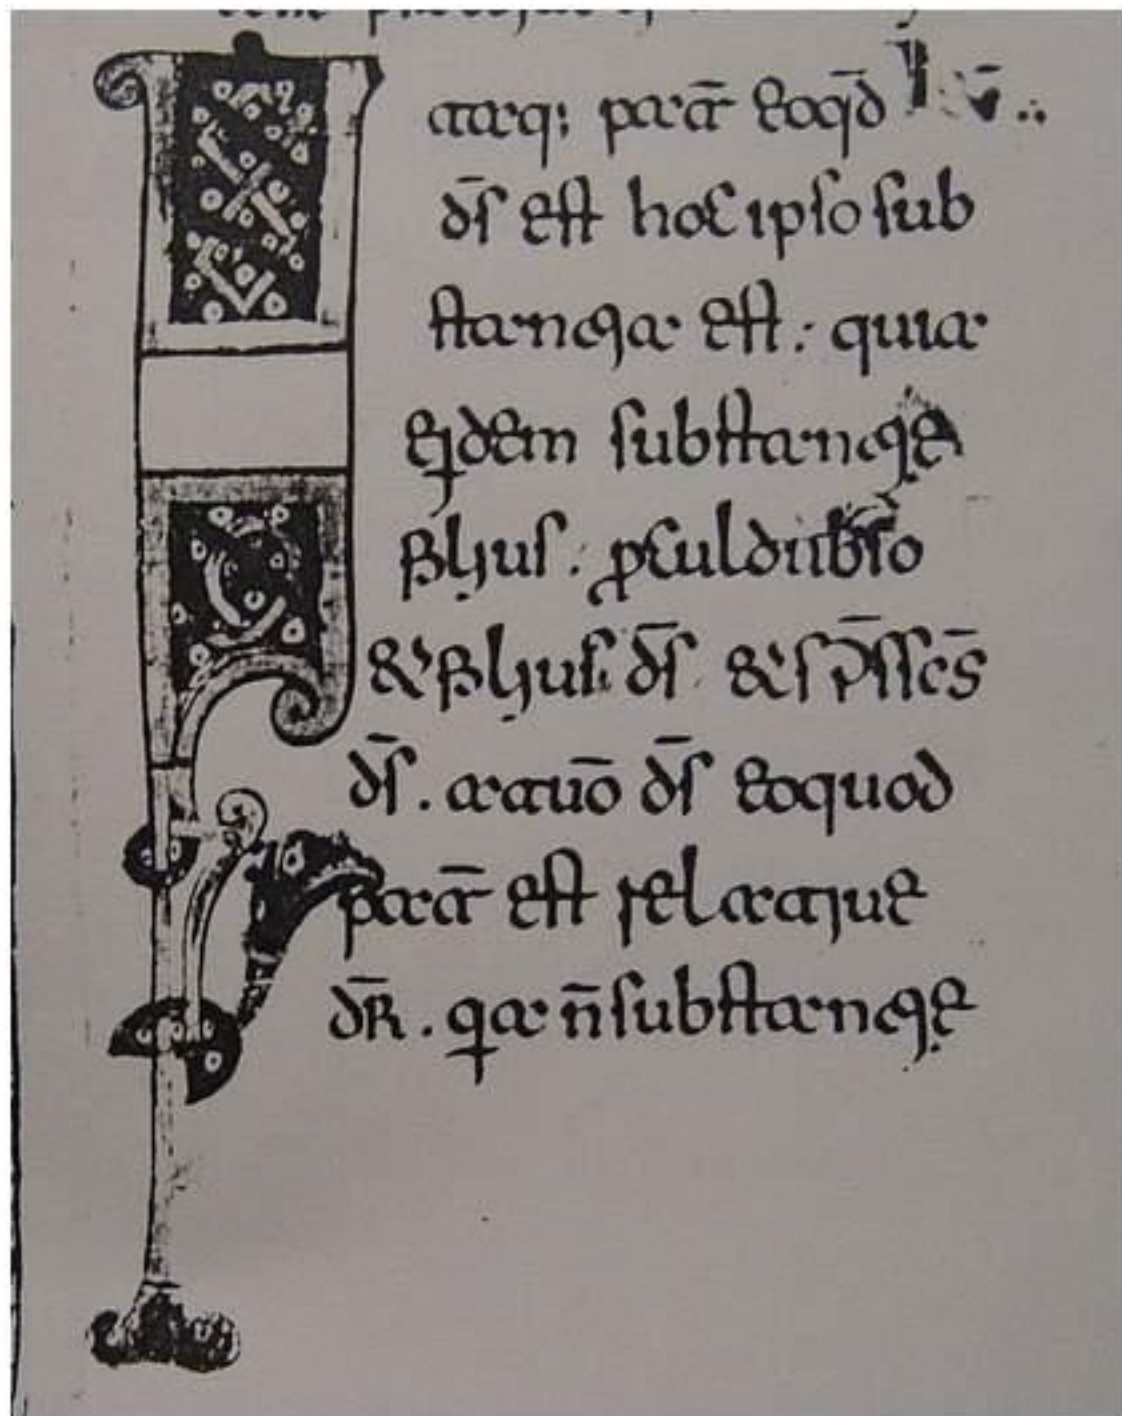 Itaq; pat̄ eoqd̄
ds̄ est hoc ipso sub
stantia est: quia
eidem substantie
filius: proculdubio
& filius ds̄ & sp̄s scs̄
ds̄. at uō ds̄ eoquod
pat̄ est relatiue
dr̄. qa n̄ substantie